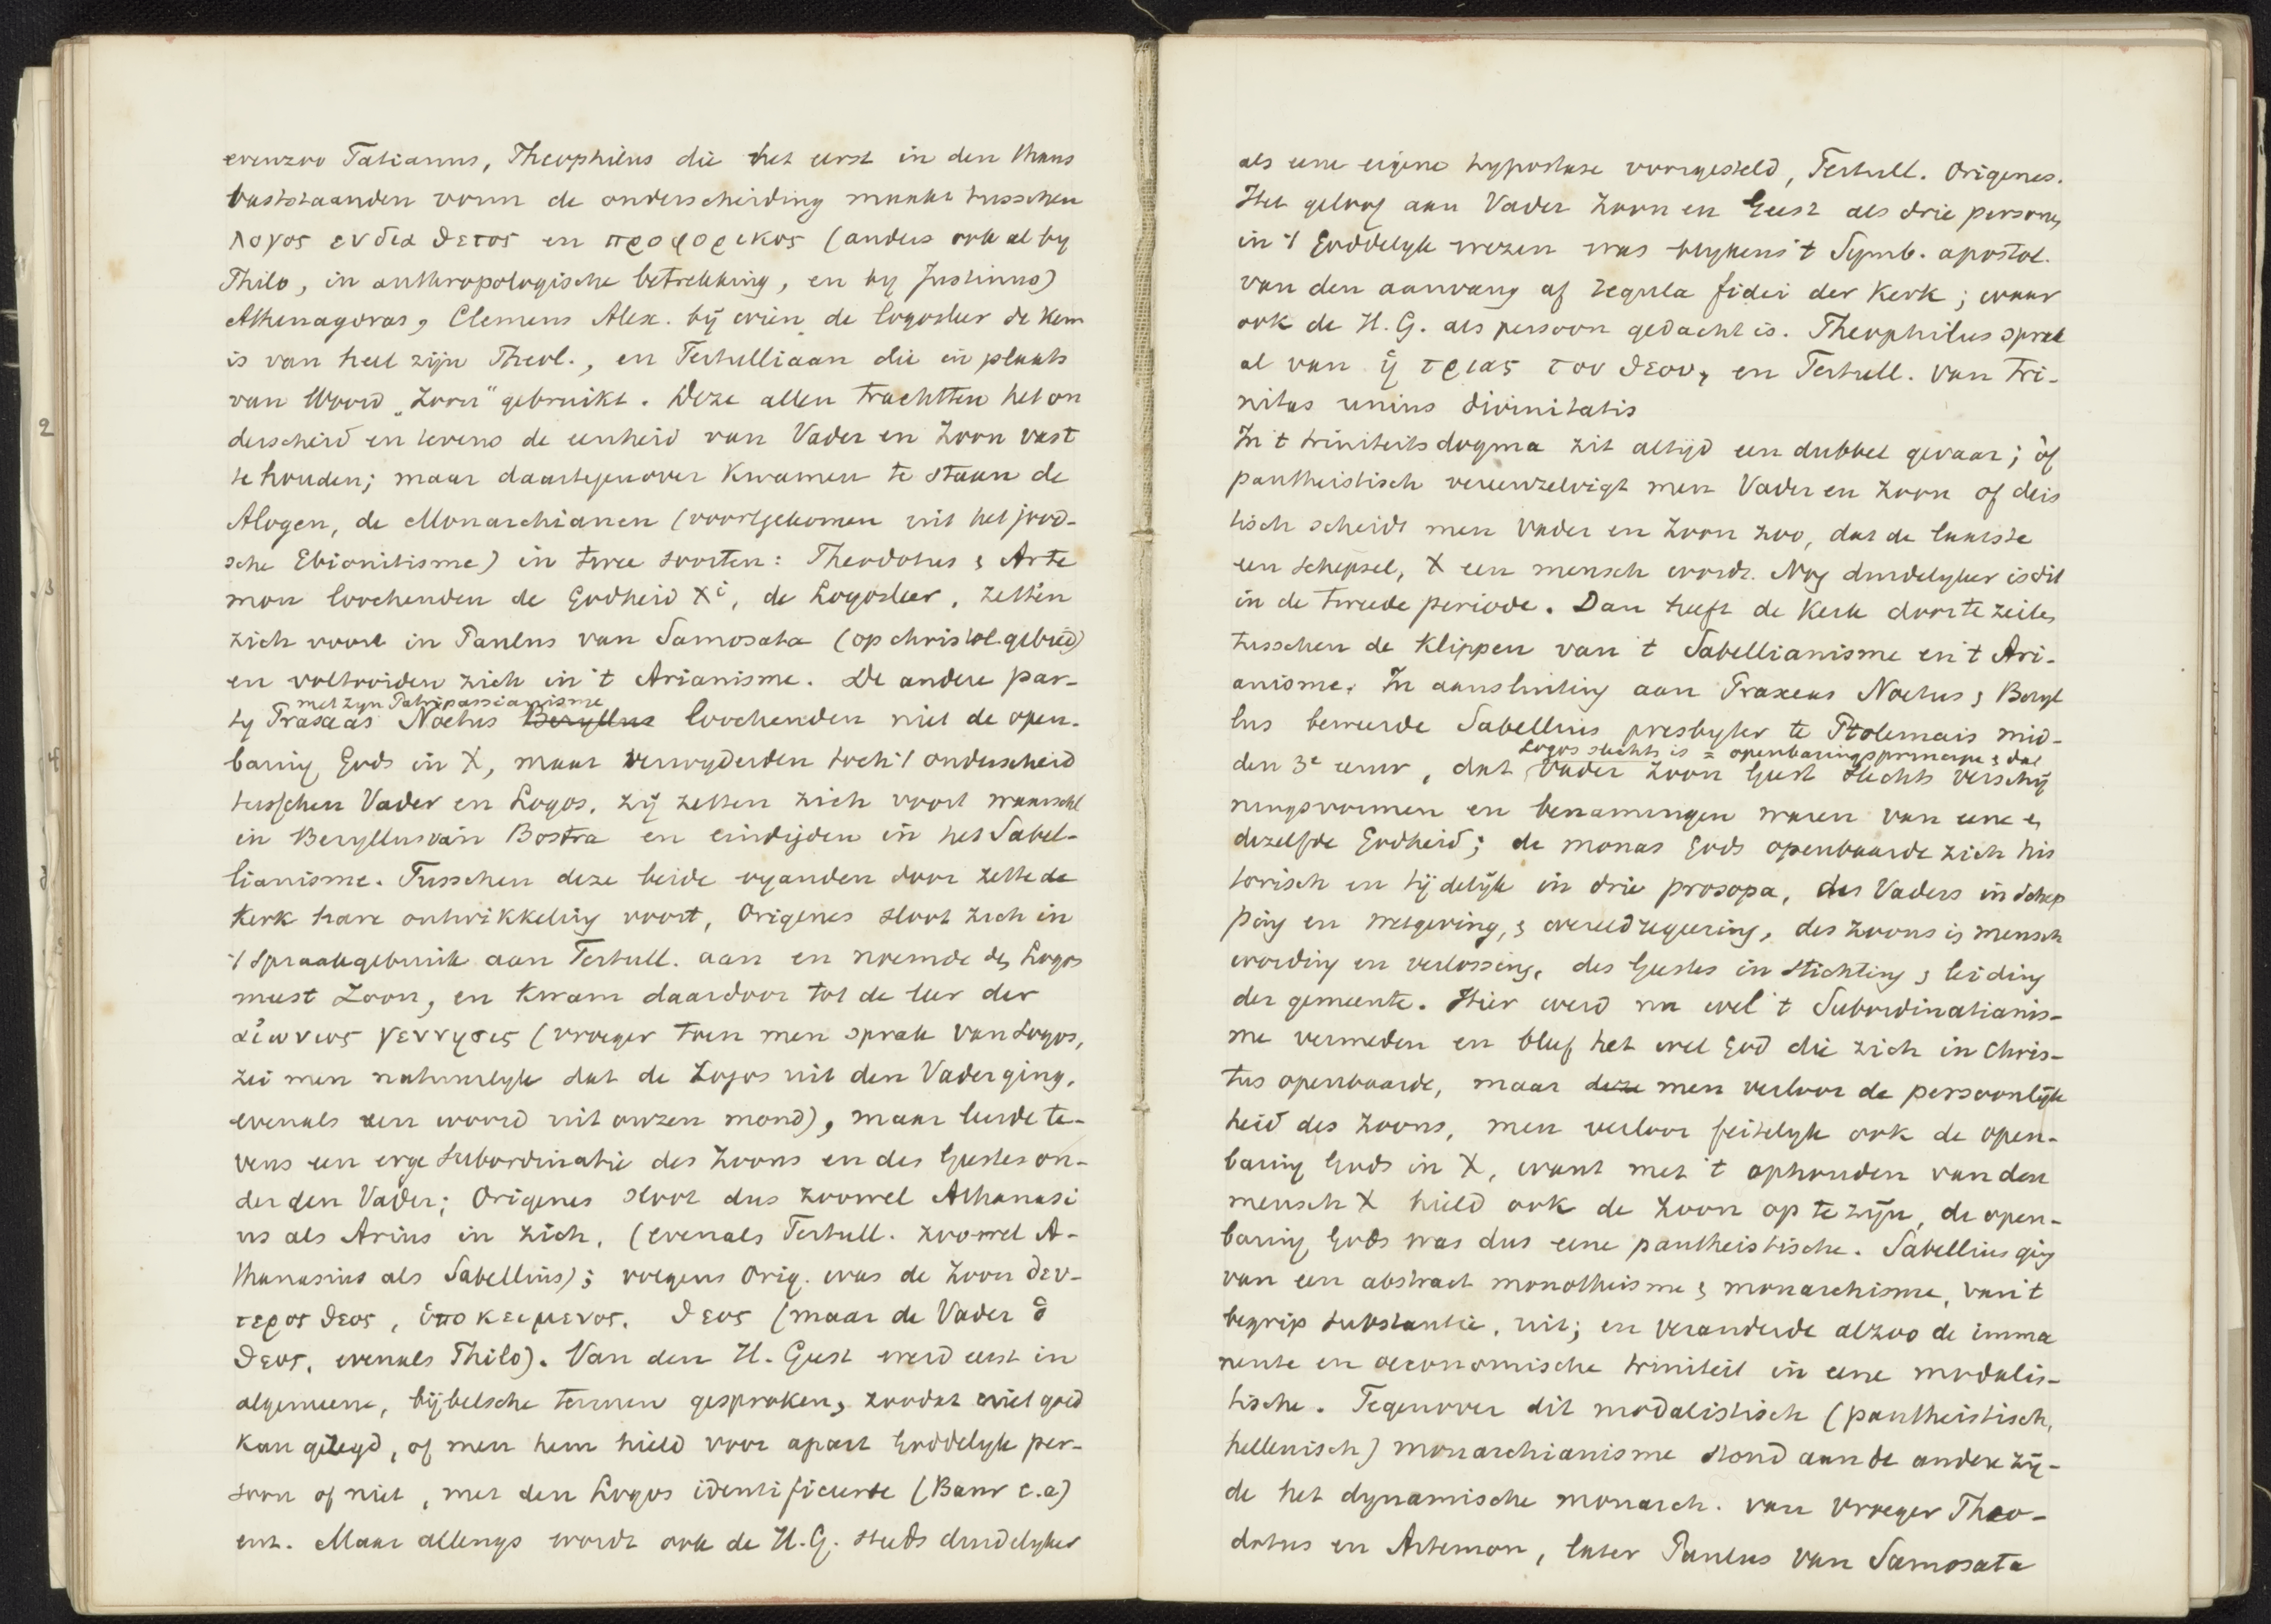 evenzoo Tatianus, Theophilus die het eerst in den thans
vaststaanden vorm de onderscheiding maakt tusschen
λογος ενδιαθετος en προφορικος (anders ook al by
Philo, in anthropologische betrekking, en by Justinus)
Athenagoras, Clemens Alex. bij wien de logosleer de kern
is van heel zijn Theol., en Tertulliaan die in plaats
van Woord „Zoon" gebruikt. Deze allen trachtten het on
derscheid en tevens de eenheid van Vader en Zoon vast
te houden; maar daartegenover kwamen te staan de
Alogen, de Monarchianen (voortgekomen uit het jood-
sche Ebionitisme) in twee soorten: Theodotus & Arte
mon loochenden de Godheid Xi, de Logosleer, zetten
zich voort in Paulus van Samosata (op christol. gebied)
en voltooiden zich in 't Arianisme. De andere par-
met zyn Patripassianisme
ty Praxeas Noetus Beryllus loochenden niet de open-
baring Gods in X, maar verwyderden toch 't onderscheid
tusschen Vader en Logos, zij zetten zich voort waarschl
in Beryllus van Bostra en eindigden in het Sabel-
lianisme. Tusschen deze beide vyanden door zette de
kerk hare ontwikkeling voort, Origenes sloot zich in
't spraakgebruik aan Tertull. aan en noemde de Logos
meest Zoon, en kwam daardoor tot de leer der
αἰωνιος γεννησις (vroeger toen men sprak van Logos,
zei men natuurlyk dat de Logos uit den Vader ging,
evenals een woord uit onzen mond), maar leerde te-
vens een erge subordinatie des Zoons en des Geestes on-
der den Vader; Origenes sloot dus zoowel Athanasi
us als Arius in zich, (evenals Tertull. zoowel A-
thanasius als Sabellius); volgens Orig. was de Zoon δευ-
τερος θεος, ὑποκειμενος. θεος (maar de Vader ὁ
θεος, evenals Philo). Van den H. Geest werd eerst in
algemeene, bijbelsche termen gesproken, zoodat niet goed
kan gezegd, of men hem hield voor apart Goddelyk per-
soon of niet, met den Logos identificeerde (Baur e.a)
enz. Maar allengs wordt ook de H.G. steeds duidelyker
als eene eigene hypostase voorgesteld, Tertull. Origenes.
Het geloof aan Vader Zoon en Geest als drie personen
in 't Goddelyk wezen was blykens 't Symb. apostol.
van den aanvang af regula fidei der Kerk; waar
ook de H.G. als persoon gedacht is. Theophilus sprak
al van ἡ τριας του θεου, en Tertull. van tri-
nitas unius divinitatis
In 't triniteitsdogma zit altijd een dubbel gevaar; òf
pantheistisch vereenzelvigt men Vader en Zoon of deïs
tisch scheidt men Vader en Zoon zoo, dat de laatste
een schepsel, X een mensch wordt. Nog duidelyker is dit
in de tweede periode. Dan heeft de Kerk door te zeilen
tusschen de klippen van 't Sabellianisme en 't Ari-
anisme. In aansluiting aan Praxeas Noetus & Beryl
lus beweerde Sabellius presbyter te Ptolemais mid-
Logos slechts is = openbaringsprincipe & dat
den 3e eeuw, dat Vader Zoon Geest slechts verschij
ningsvormen en benamingen waren van eene en
dezelfde Godheid; de monas Gods openbaarde zich his
torisch en tijdelijk in drie prosopa, des Vaders in schep
ping en wetgeving, & wereldregeering, des Zoons in mensch
wording en verlossing, des Geestes in stichting & leiding
der gemeente. Hier werd nu wel 't Subordinatianis-
me vermeden en bleef het wel God die zich in Chris-
tus openbaarde, maar deze men verloor de persoonlijk
heid des Zoons, men verloor feitelyk ook de open-
baring Gods in X, want met 't ophouden van den
mensch X hield ook de Zoon op te zijn, de open-
baring Gods was dus eene pantheistische. Sabellius ging
van een abstract monotheisme & monarchisme, van 't
begrip substantie, uit; en veranderde alzoo de imma
nente en oeconomische triniteit in eene modalis-
tische. Tegenover dit modalistisch (pantheistisch,
hellenisch) monarchianisme stond aan de andere zij-
de het dynamische monarch. van vroeger Theo-
dotus en Artemon, later Paulus van Samosata